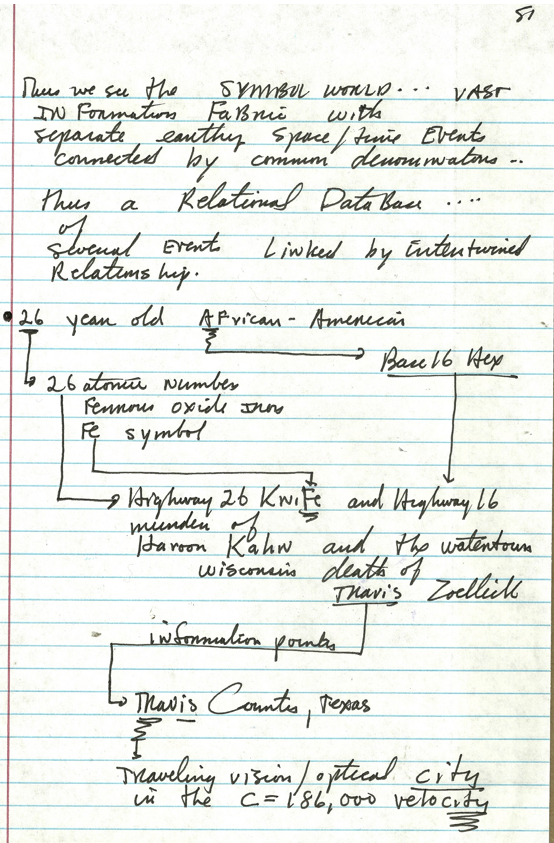 81
Thus we see the SYMBOL WORLD... VAST
INFormation FaBric with
separate earthly Space/Time Events
connected by common denominators..
thus a Relational DataBase ....
of
Several Events Linked by intertwined
Relationship.
26 year old AFrican-American
Base 16 Hex
26 atomic number
Ferrous oxide Iron
Fe symbol
Highway 26 KniFe and Highway 16
murder of
Haroon Kahn and the watertown
wisconsin death of
Travis Zoellick
information points
Travis County, Texas
Traveling vision/optical city
in the C=186,000 velocity